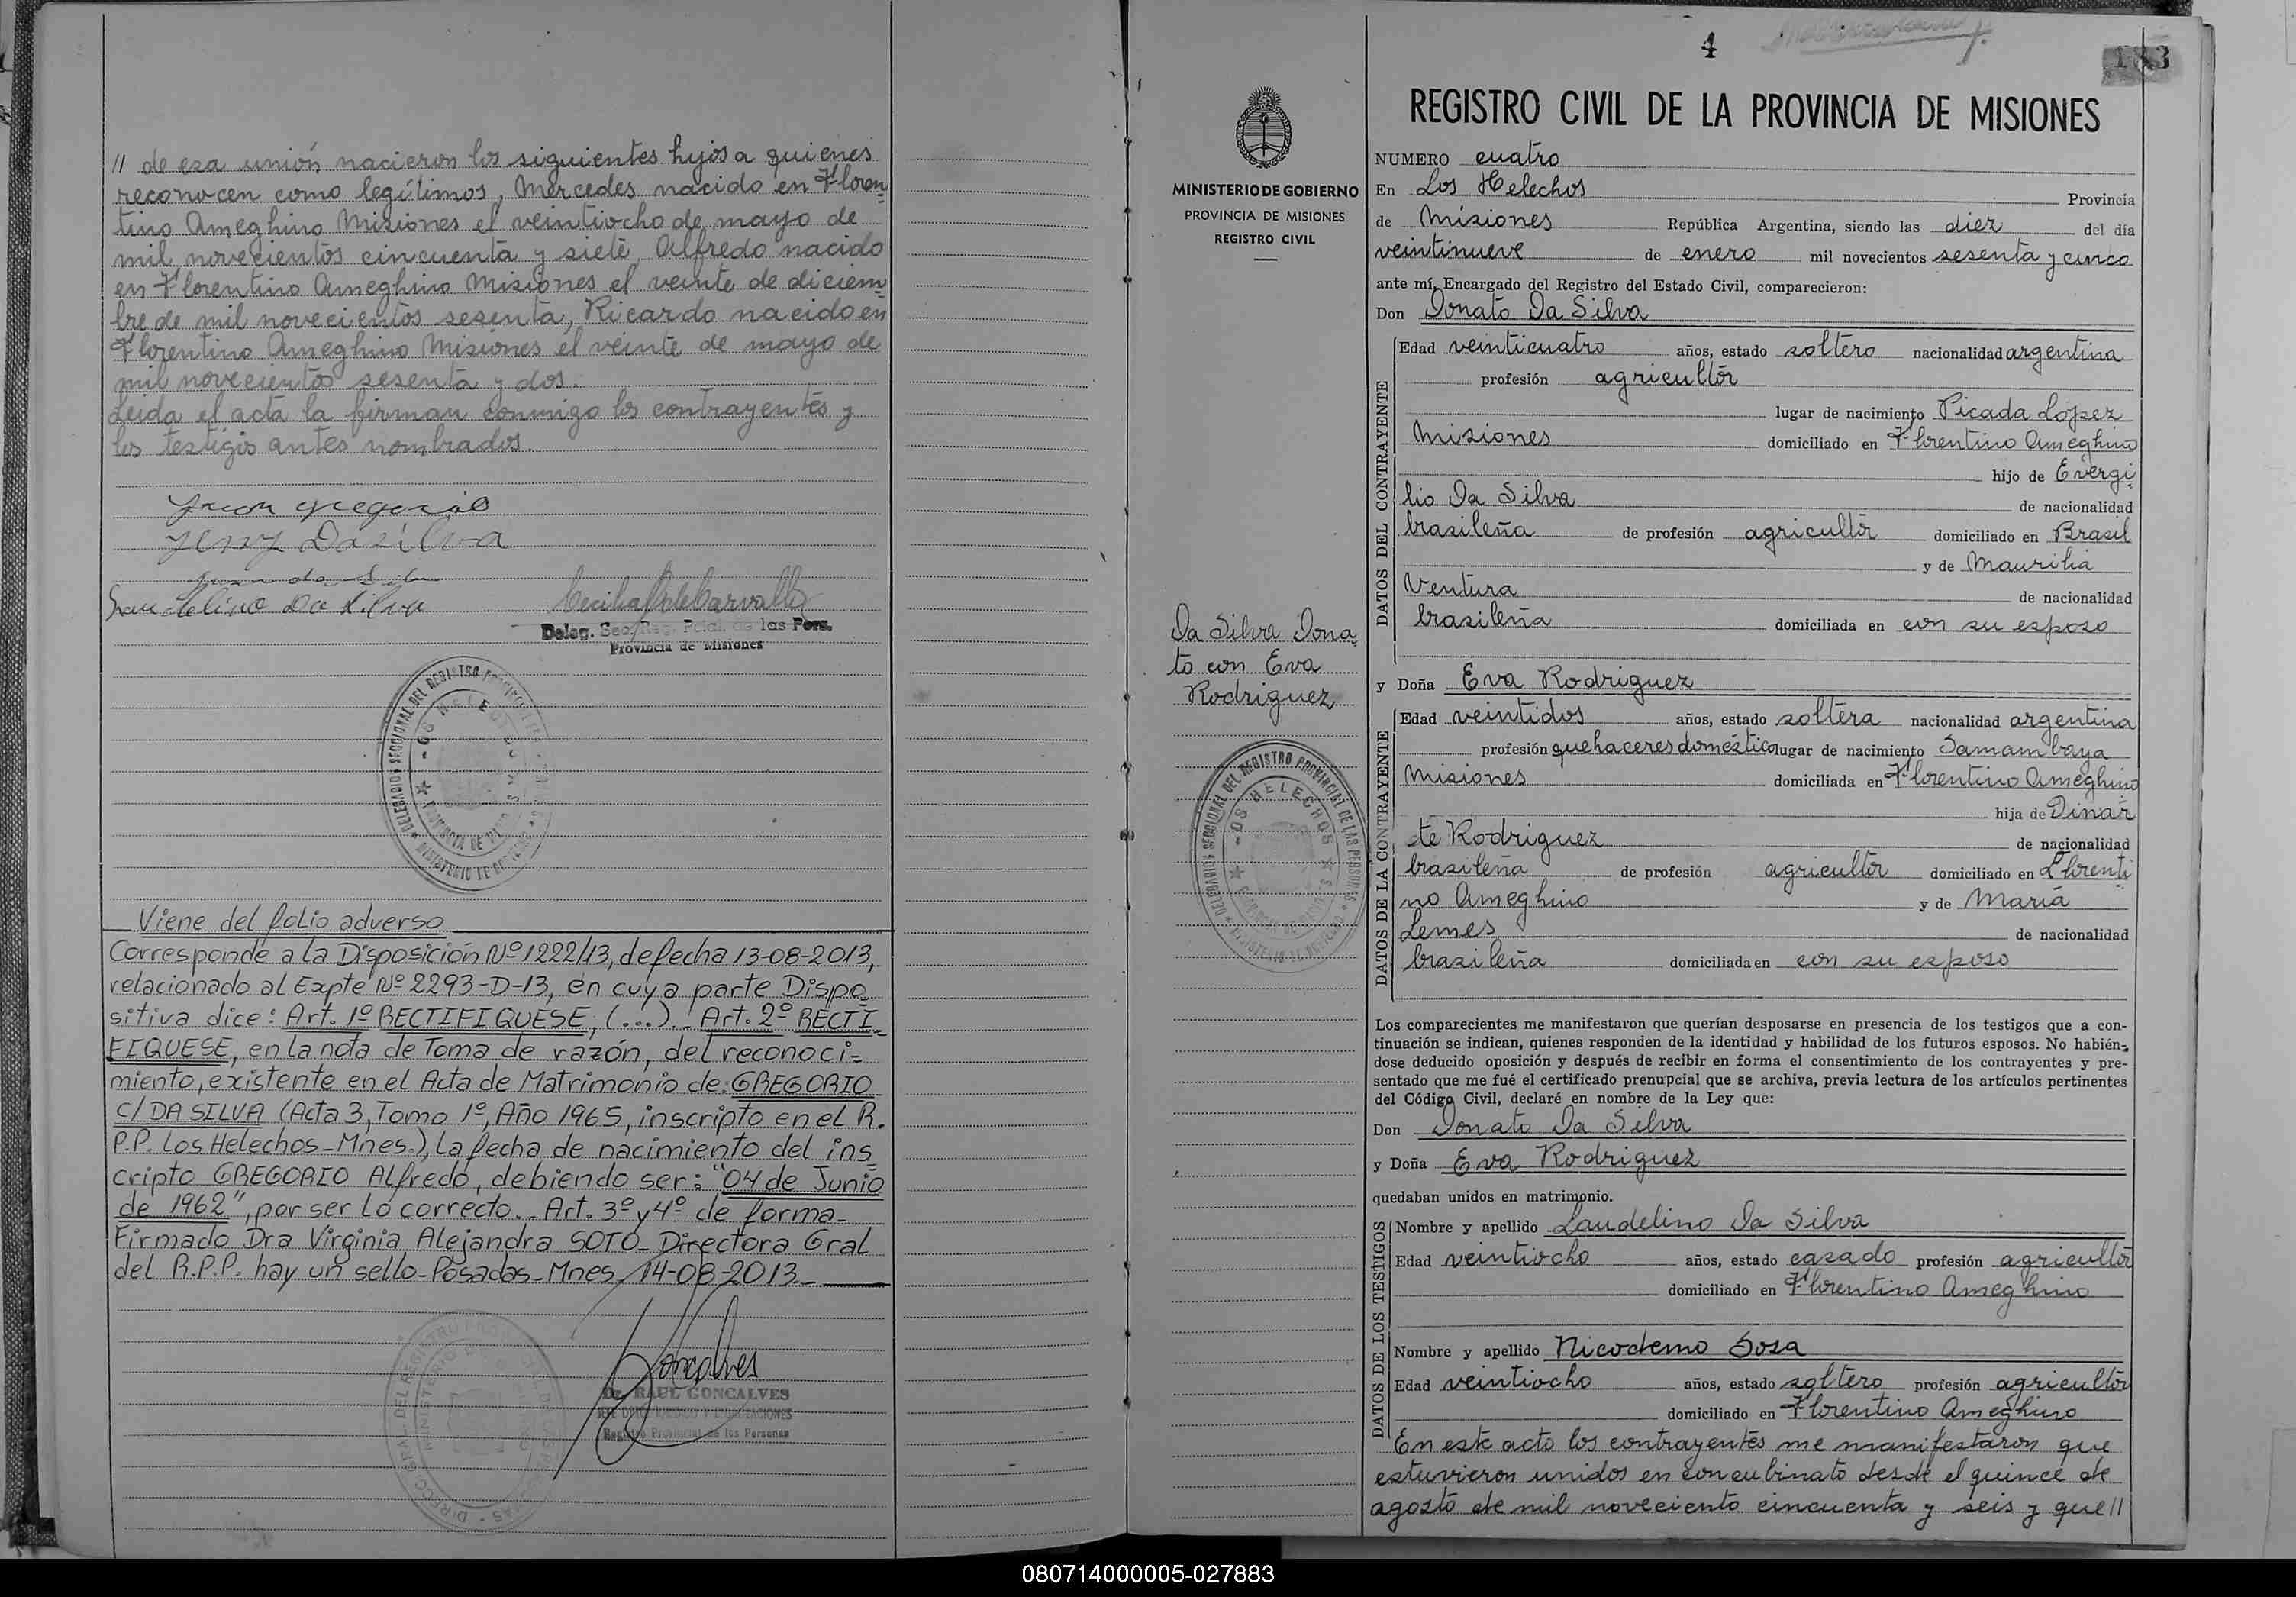 // de esa unión nacieron los siguientes hijos a quienes
reconocen como legítimos, Mercedes nacido en Floren=
tino Ameghino Misiones el veintiocho de mayo de
mil novecientos cincuenta y siete, Alfredo nacido
en Florentino Ameghino Misiones el veinte de diciem=
bre de mil novecientos sesenta, Ricardo nacido en
Florentino Ameghino Misiones el veinte de mayo de
mil novecientos sesenta y dos.
Leida el acta la firman conmigo los contrayentes y
los testigos antes nombrados.
Juan gregorio
Yeny Da silva
Juan da Silva
Laudelino Da silva
Deleg. Sec. Reg. Pcial. de las Pers.
Provincia de Misiones
DELEGACION SECCIONAL DEL REGISTRO
Viene del folio adverso
Corresponde a la Disposición Nº 1222/13, de fecha 13-08-2013,
relacionado al Expte Nº 2293-D-13, en cuya parte Dispo
sitiva dice: Art. 1º RECTIFIQUESE, (...). Art. 2º RECTI
FIQUESE, en la nota de Toma de razón, del reconoci=
miento, existente en el Acta de Matrimonio de: GREGORIO
C/ DA SILVA (Acta 3, Tomo 1º, Año 1965, inscripto en el R.
P.P. Los Helechos-Mnes.), La fecha de nacimiento del ins
cripto GREGORIO Alfredo, debiendo ser: "04 de Junio
de 1962", por ser Lo correcto.. Art. 3º y 4º de forma-
Firmado Dra Virginia Alejandra SOTO-Directora Gral
del R.P.P. hay un sello-Posadas-Mnes, 14-08-2013.
Goncalves
Dr. RAUL GONCALVES
Registro Provincial de las Personas
4
183
MINISTERIO DE GOBIERNO
PROVINCIA DE MISIONES
REGISTRO CIVIL
Da Silva Dona=
to con Eva
Rodriguez
DELEGACION SECCIONAL DEL REGISTRO PROVINCIAL DE LAS PERSONAS
LOS HELECHOS
REGISTRO CIVIL DE LA PROVINCIA DE MISIONES
NUMERO cuatro
En Los Helechos Provincia
de Misiones República Argentina, siendo las diez del día
veintinueve de enero mil novecientos sesenta y cinco
ante mí, Encargado del Registro del Estado Civil, comparecieron:
Don Donato Da Silva
DATOS DEL CONTRAYENTE
Edad veinticuatro años, estado soltero nacionalidad argentina
profesión agricultor
lugar de nacimiento Picada Lopez
Misiones domiciliado en Florentino Ameghino
hijo de Evergi
lio Da Silva de nacionalidad
brasileña de profesión agricultor domiciliado en Brasil
y de Maurilia
Ventura de nacionalidad
brasileña domiciliada en con su esposo
y Doña Eva Rodriguez
DATOS DE LA CONTRAYENTE
Edad veintidos años, estado soltera nacionalidad argentina
profesión quehaceres domésticos lugar de nacimiento Samambaya
Misiones domiciliada en Florentino Ameghino
hija de Dinar
te Rodriguez de nacionalidad
brasileña de profesión agricultor domiciliado en Florenti
no Ameghino y de María
Lemes de nacionalidad
brasileña domiciliada en con su esposo
Los comparecientes me manifestaron que querían desposarse en presencia de los testigos que a con-
tinuación se indican, quienes responden de la identidad y habilidad de los futuros esposos. No habién-
dose deducido oposición y después de recibir en forma el consentimiento de los contrayentes y pre-
sentado que me fué el certificado prenupcial que se archiva, previa lectura de los artículos pertinentes
del Código Civil, declaré en nombre de la Ley que:
Don Donato Da Silva
y Doña Eva Rodriguez
quedaban unidos en matrimonio.
DATOS DE LOS TESTIGOS
Nombre y apellido Laudelino Da Silva
Edad veintiocho años, estado casado profesión agricultor
domiciliado en Florentino Ameghino
Nombre y apellido Nicodemo Sosa
Edad veintiocho años, estado soltero profesión agricultor
domiciliado en Florentino Ameghino
En este acto los contrayentes me manifestaron que
estuvieron unidos en concubinato desde el quince de
agosto de mil noveciento cincuenta y seis y que //
080714000005-027883